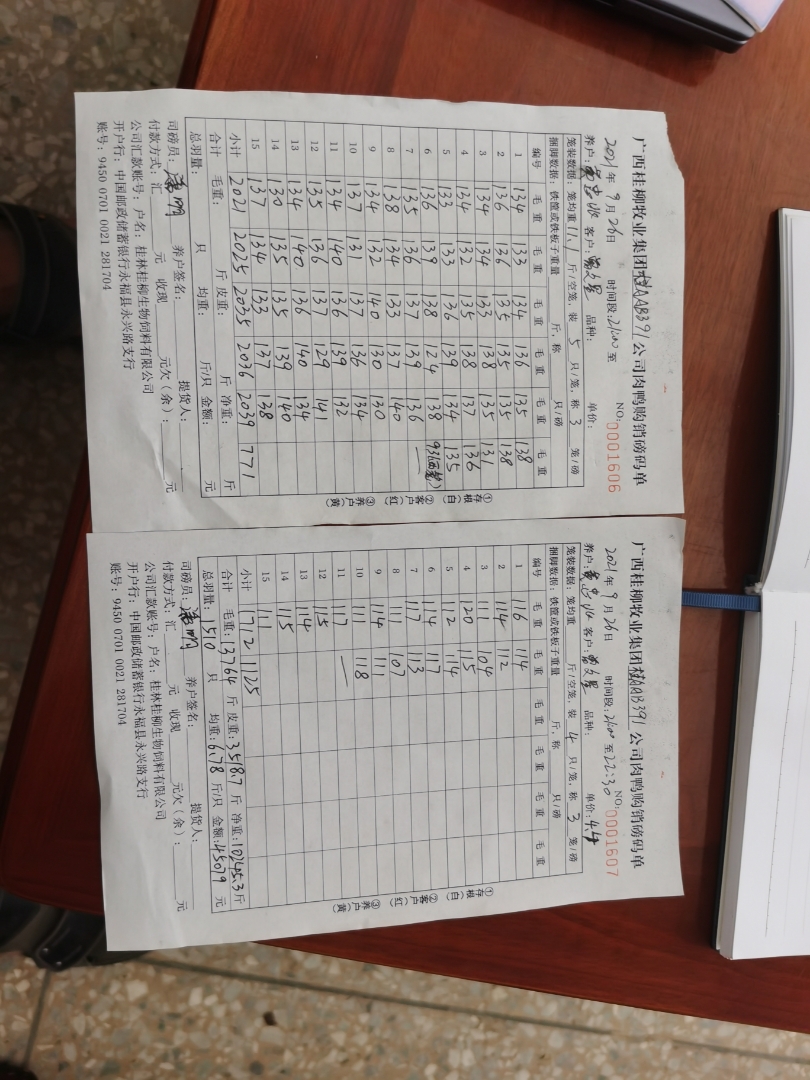 广西桂柳牧业集团桂AAB391公司肉鸭购销磅码单
NO:0001606
2021年9月26日 时间段:21:00至
养户: 客户: 品种: 单价:
笼装数据:笼均重11.1斤/空笼,装5只/笼,称3笼/磅
捆脚数据:铁筐或铁板子重量 斤,称 只/磅
编号 毛重 毛重 毛重 毛重 毛重 毛重
1 134 133 134 136 135 138
2 136 136 135 135 135 138
3 134 134 133 138 135 131
4 134 132 135 138 137 136
5 133 133 136 139 134 135
6 136 139 138 124 138 93(两笼)
7 135 136 137 139 136 —
8 138 134 133 137 140
9 134 132 140 130 130
10 137 131 137 136 134
11 134 140 136 139 132
12 135 136 137 129 141
13 134 140 136 140 134
14 130 135 135 139 140
15 137 134 133 137 138
小计 2021 2025 2035 2036 2039 771
合计 毛重: 斤 皮重: 斤 净重: 斤
总羽量: 只 均重: 斤/只 金额: 元
司磅员: 养户签名: 提货人:
付款方式:汇 元 收现 元欠(余): 元
公司汇款账号:户名:桂林桂柳生物饲料有限公司
开户行:中国邮政储蓄银行永福县永兴路支行
账号:9450 0701 0021 281704
①存根(白) ②客户(红) ③养户(黄)
广西桂柳牧业集团桂AAB391公司肉鸭购销磅码单
NO:0001607
2021年9月26日 时间段:21:00至22:30
养户: 客户: 品种: 单价:4.4
笼装数据:笼均重 斤/空笼,装4只/笼,称3笼/磅
捆脚数据:铁筐或铁板子重量 斤,称 只/磅
编号 毛重 毛重 毛重 毛重 毛重 毛重
1 116 114
2 114 112
3 111 104
4 120 115
5 112 114
6 114 117
7 117 113
8 111 107
9 114 111
10 111 118
11 117 —
12 115
13 114
14 115
15 111
小计 1712 1125
合计 毛重:13764斤 皮重:3518.7斤 净重:10245.3斤
总羽量:1510只 均重:6.78斤/只 金额:45079元
司磅员: 养户签名: 提货人:
付款方式:汇 元 收现 元欠(余): 元
公司汇款账号:户名:桂林桂柳生物饲料有限公司
开户行:中国邮政储蓄银行永福县永兴路支行
账号:9450 0701 0021 281704
①存根(白) ②客户(红) ③养户(黄)